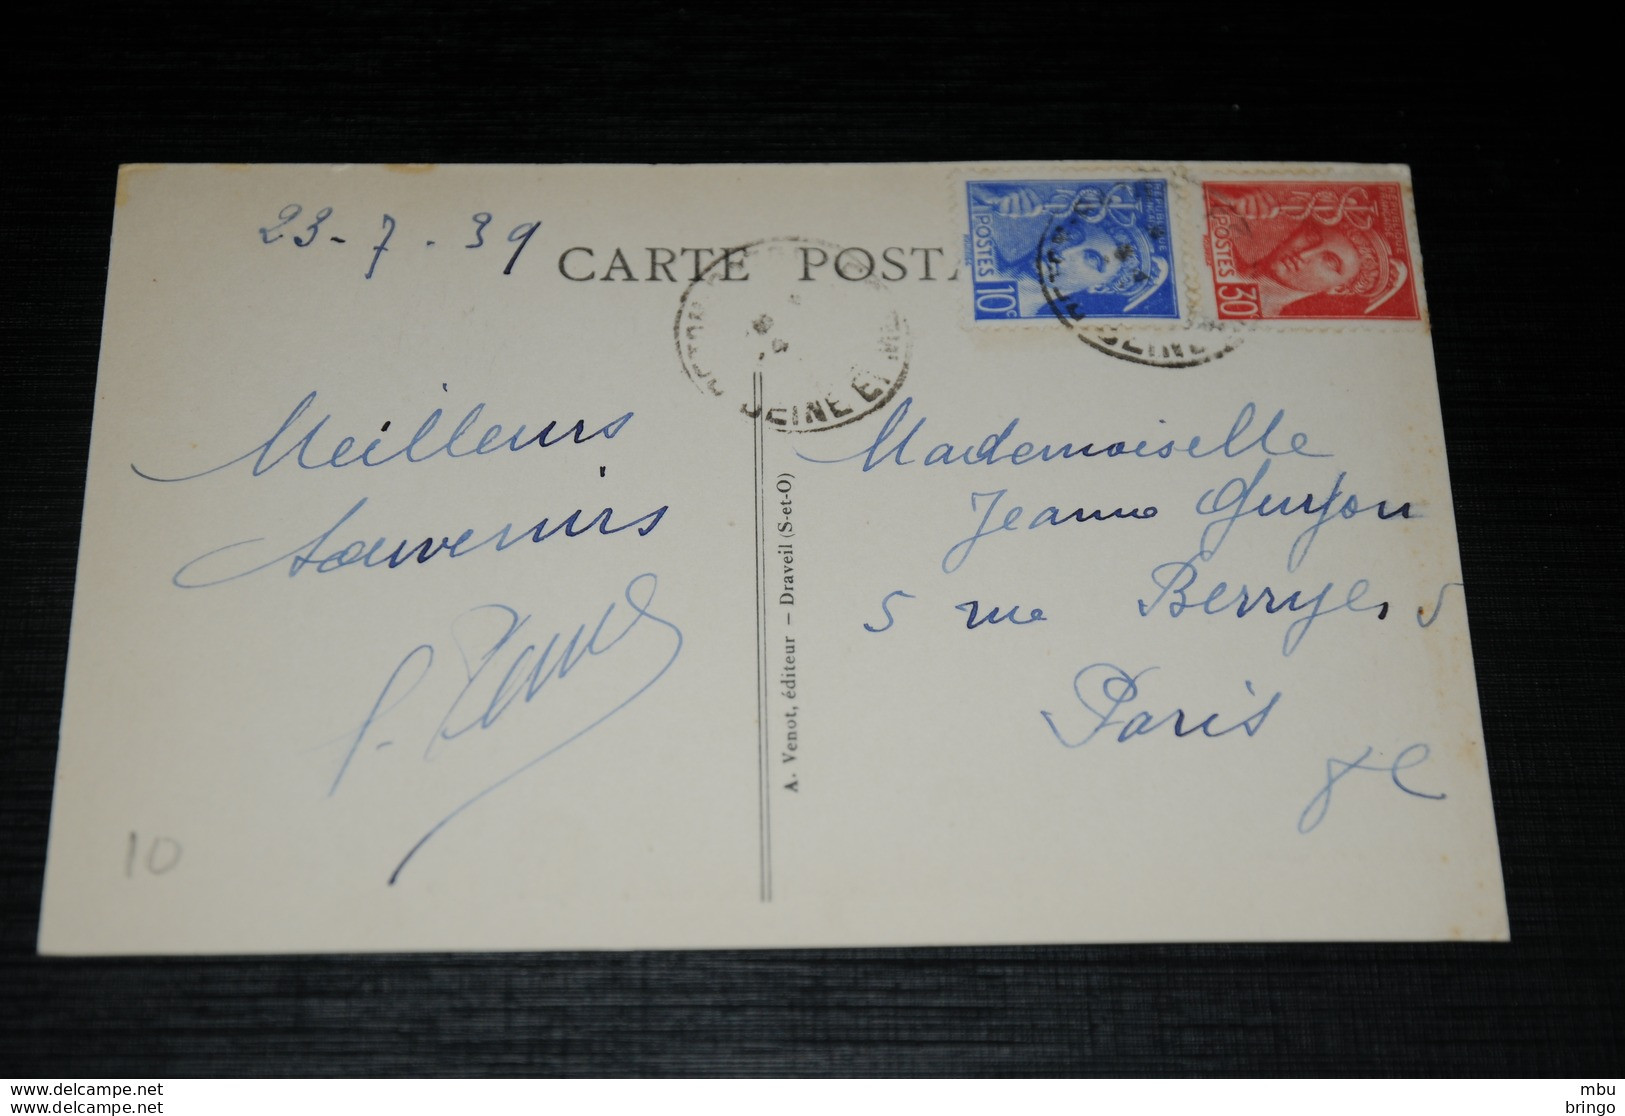 23-7-39
CARTE POSTA
RÉPUBLIQUE FRANÇAISE
POSTES
10c
RÉPUBLIQUE FRANÇAISE
POSTES
30c
SEINE ET M
SEINE
Meilleurs
souvenirs
Mademoiselle
Jeanne Guyon
5 rue Berryer 5
Paris
A. Venot, éditeur — Draveil (S-et-O)
10
delcampe.net
delcampe.net
mbu
bringo